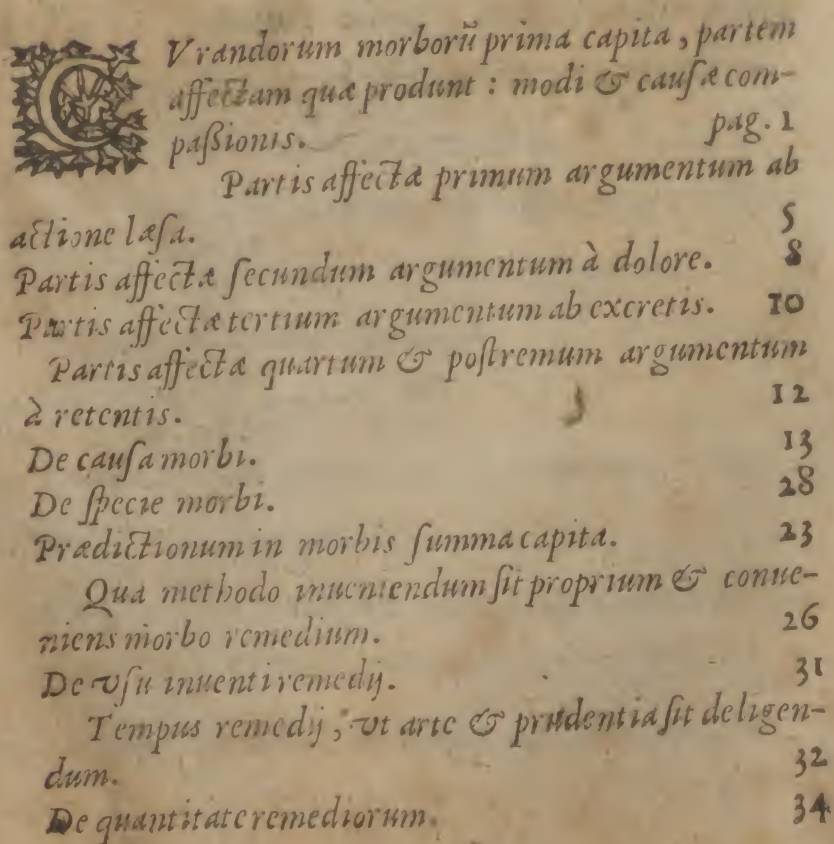 CVrandorum morborũ prima capita, partem
affectam quæ produnt : modi & cauſæ com-
paßionis. pag. 1
Partis affectæ primum argumentum ab
actione læſa. 5
Partis affectæ ſecundum argumentum à dolore. 8
Partis affectæ tertium argumentum ab excretis. 10
Partis affectæ quartum & poſtremum argumentum
à retentis. 12
De cauſa morbi. 13
De ſpecie morbi. 28
Prædictionum in morbis ſumma capita. 23
Qua methodo inueniendum ſit proprium & conue-
niens morbo remedium. 26
De vſu inuenti remedij. 31
Tempus remedij, vt arte & prudentia ſit deligen-
dum. 32
De quantitate remediorum. 34